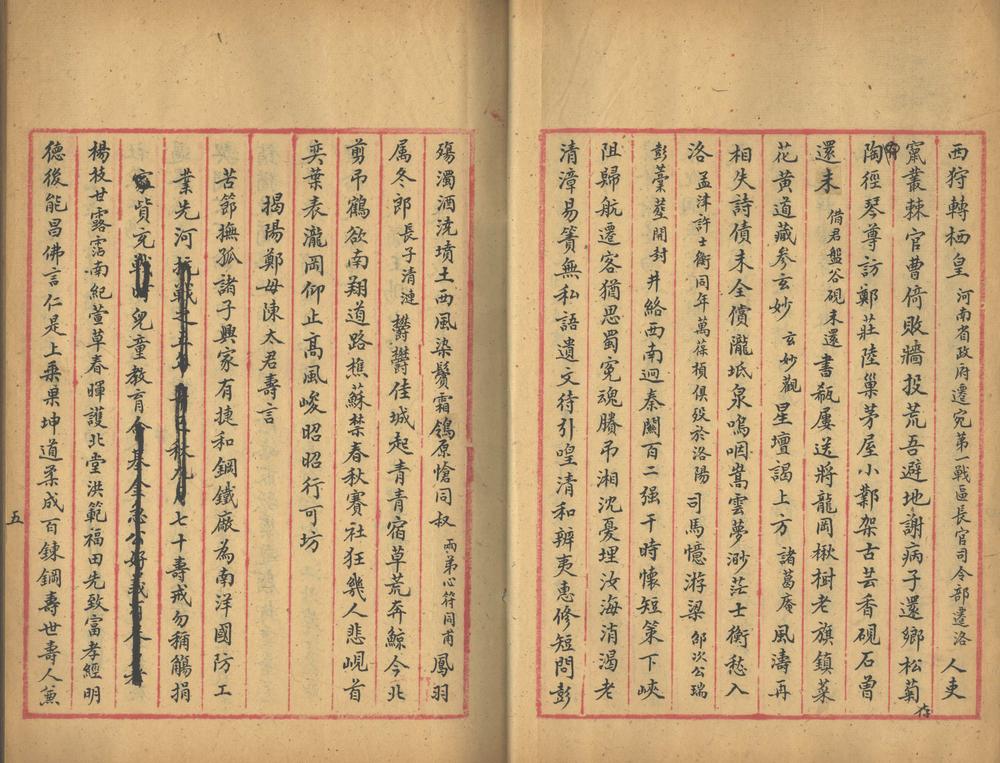 西狩轉栖皇河南省政府遷宛第一戰區長官司令部遷洛人吏
竄叢棘官曹倚敗牆投荒吾避地謝病子還鄉松菊存
陶徑琴尊訪鄭莊陸巢茅屋小鄴架古芸香硯石曾
還未借君盤谷硯未還書瓻屢送將龍岡楸樹老旗鎮菜
花黃道藏參玄妙玄妙觀星壇謁上方諸葛庵風濤再
相失詩債未全償瀧坻泉鳴咽嵩雲夢渺茫士衡愁入
洛孟津許士衡同年萬葆楨俱歿於洛陽司馬憶游梁邹次公瑞
彭藁塟開封井絡西南迥秦關百二强干時懷短策下峽
阻歸航遷客猶思蜀冤魂賸吊湘沈憂埋汝海消渴老
清漳易簀無私語遺文待引喤清和辨夷惠修短問彭
殤濁酒澆墳土西風染鬢霜鴒原愴同叔兩弟心符同甫鳳羽
属冬郎長子清漣鬱鬱佳城起青青宿草荒奔鯨今北
剪吊鶴欲南翔道路樵蘇禁春秋賽社狂幾人悲峴首
奕葉表瀧岡仰止高風峻昭昭行可坊
揭陽鄭母陳太君壽言
苦節撫孤諸子興家有捷和鋼鐵廠為南洋國防工
業先河抗戰之五年 月 日秋九月七十壽戒勿稱觴捐
貲充 兒童教育會基金急公好義
楊枝甘露霑南紀萱草春暉護北堂洪範福田先致富孝經明
德後能昌佛言仁是上乘果坤道柔成百鍊鋼壽世壽人兼
五